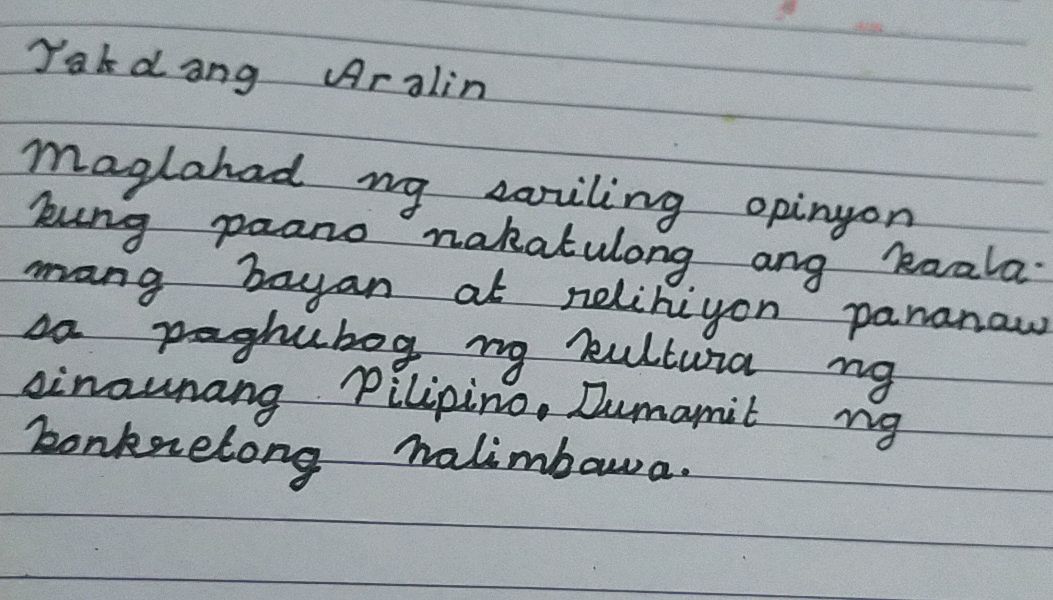 Takdang Aralin
Maglahad ng sariling opinyon
kung paano nakatulong ang kaala-
mang bayan at relihiyon pananaw
sa paghubog ng kultura ng
sinaunang Pilipino. Dumamit ng
konkretong halimbawa.